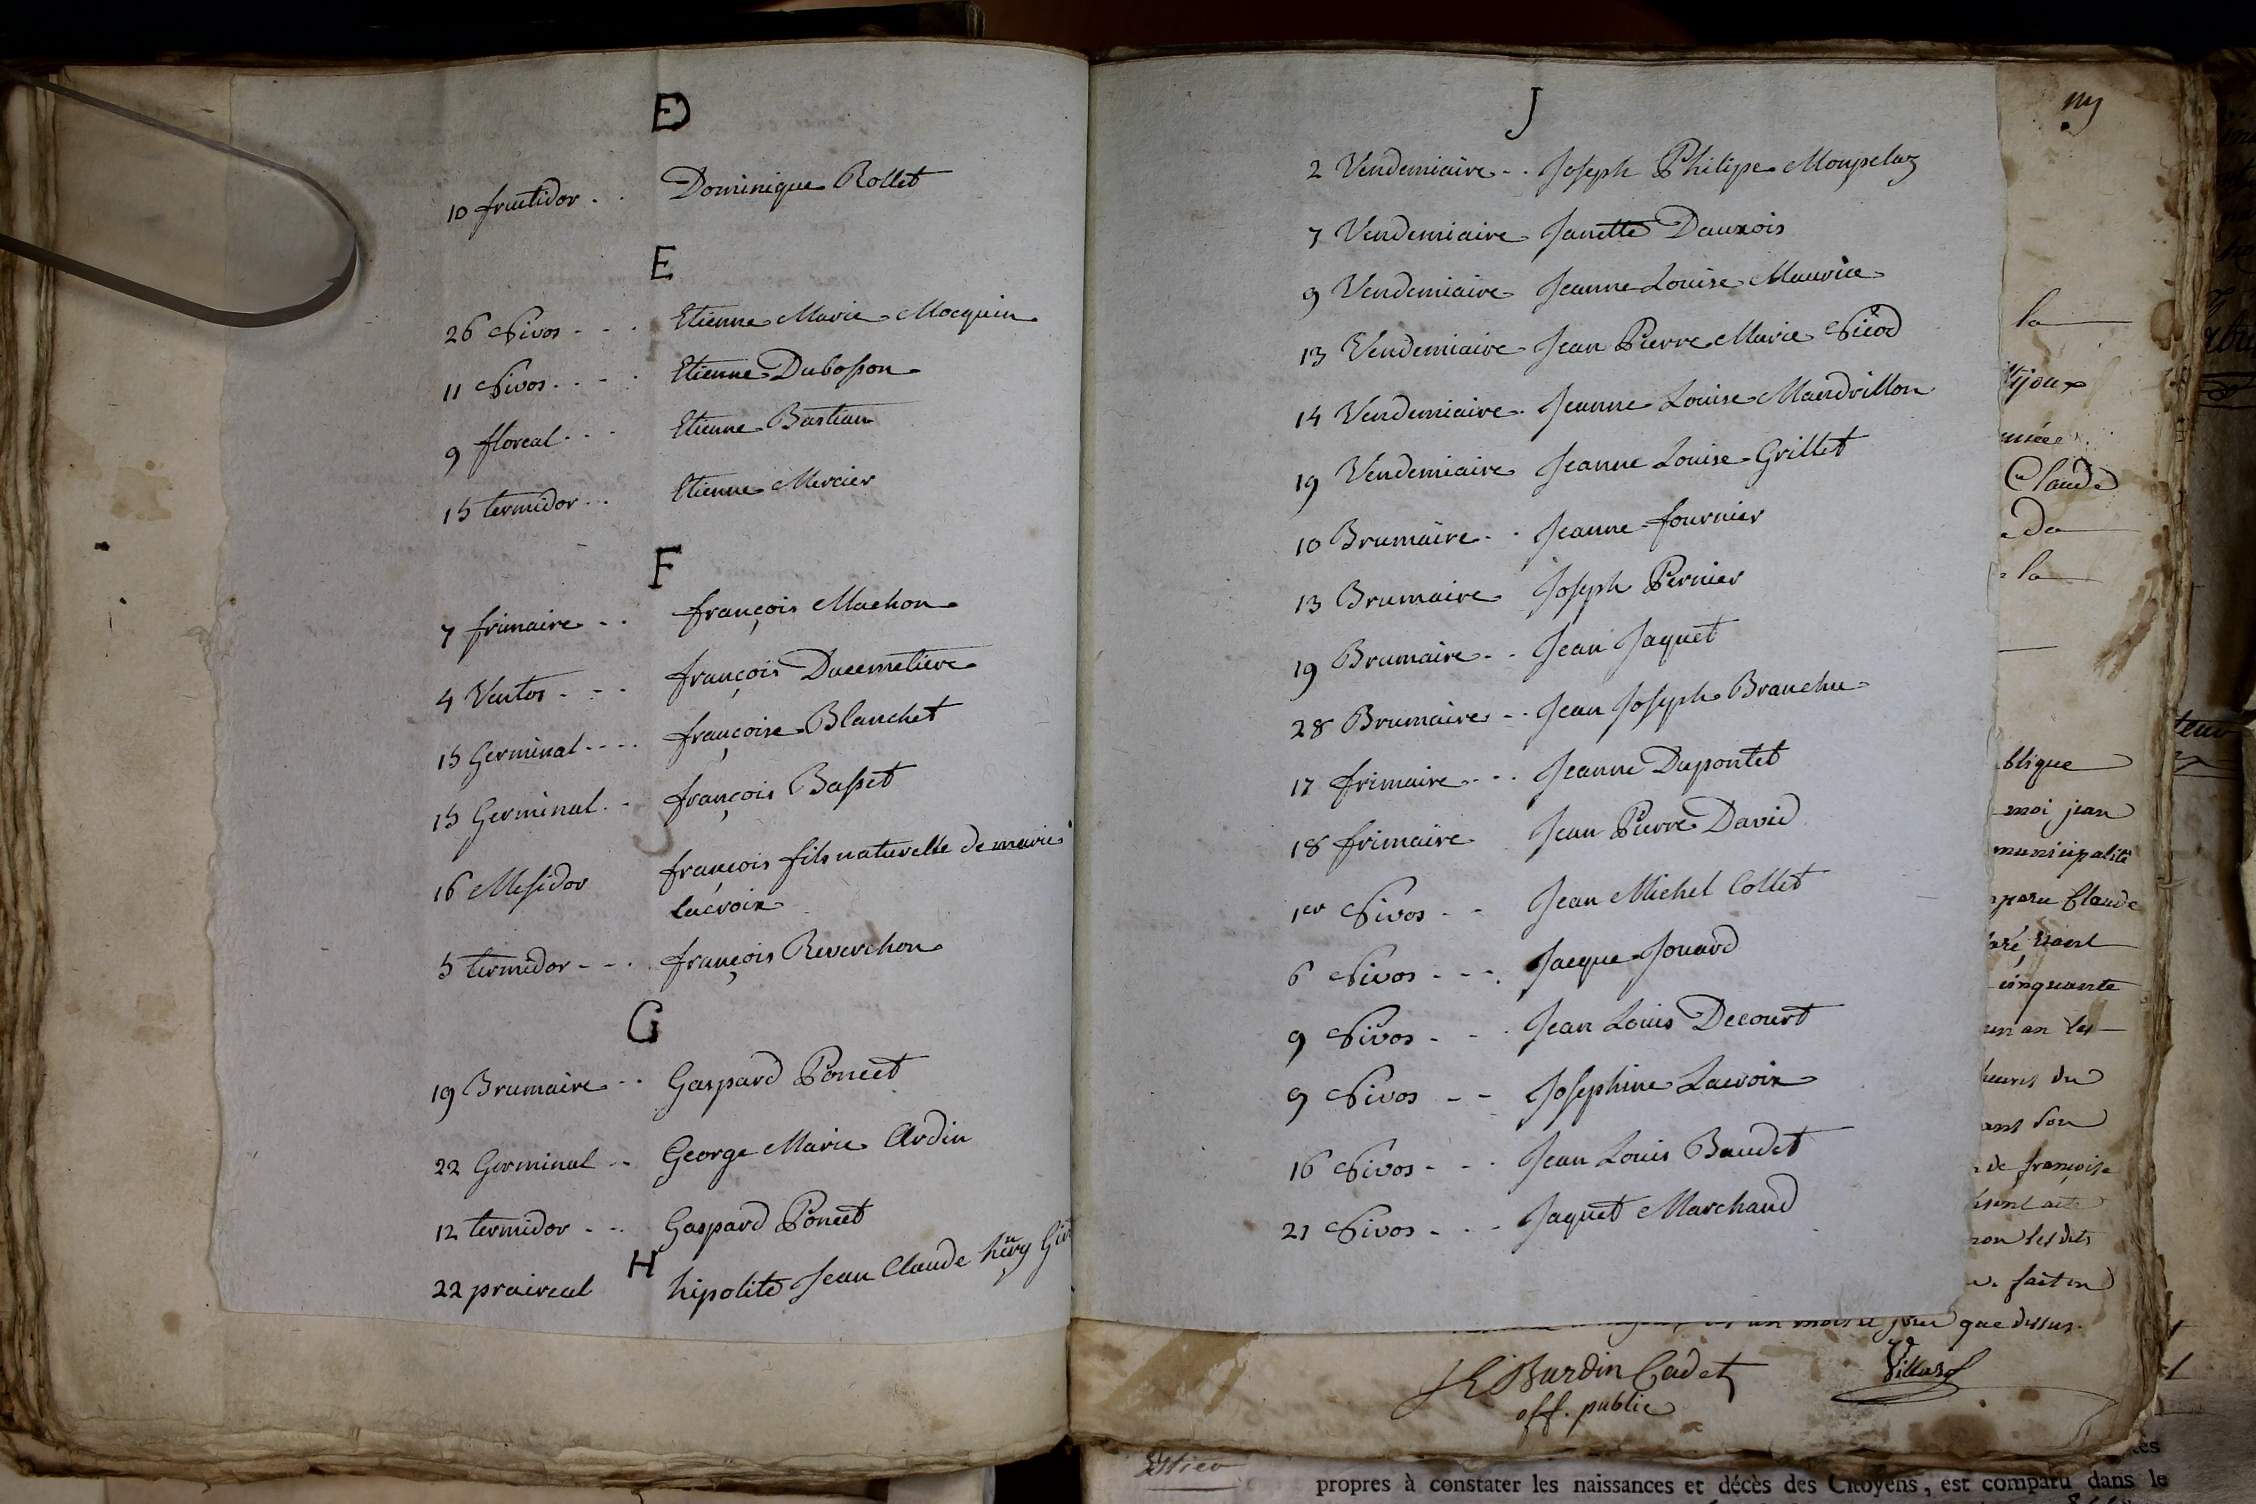 D
10 fructidor . . Dominique Rollet
E
26 Nivos - - . Etienne Marie Mocquin
11 Nivos . . - . Etienne Dubosson
9 floreal . . . Etienne Bastian
15 termidor . . . Etienne Mercier
F
7 frimaire - . françois Machon
4 Ventos - - - françois Ducemetiere
15 Germinal - - - . françoise Blanchet
15 Germinal . - françois Basset
16 Messidor françois fils naturelle de marie
Lacroix
5 termidor - - . françois Reverchon
G
19 Brumaire - . Gaspard Poncet
22 Germinal - - George Marie Ardin
12 termidor - - . Gaspard Poncet
H
22 praireal hipolite Jean Claude hñry
J
2 Vendemiaire - . Joseph Philipe Monpelaz
7 Vendemiaire Janette Dauxois
9 Vendemiaire Jeanne Louise Maurice
13 Vendemiaire Jean Pierre Marie Nicod
14 Vendemiaire . Jeanne Louise Mandrillon
19 Vendemiaire Jeanne Louise Grillet
10 Brumaire - . Jeanne fournier
13 Brumaire Joseph Pernier
19 Brumaire - . Jean Jaquet
28 Brumaire - . Jean Joseph Branchu
17 frimaire - - . Jeanne Dupontet
18 frimaire Jean Pierre David
1er Nivos - - Jean Michel Collet
6 Nivos - - - . Jacque Jouard
9 Nivos - - . Jean Louis Decourt
9 Nivos - - Josephine Lacroix
16 Nivos - - . Jean Louis Baudet
21 Nivos - . - Jaquet Marchand
la
Claude
de
la
blique
moi jean
municipalité
Claude
cinquante
un an les
du
son
de françoise
acte
les dits
fait en
jour que dessus.
Burdin Cadet
off. public
propres à constater les naissances et décès des Citoyens, est comparu dans le